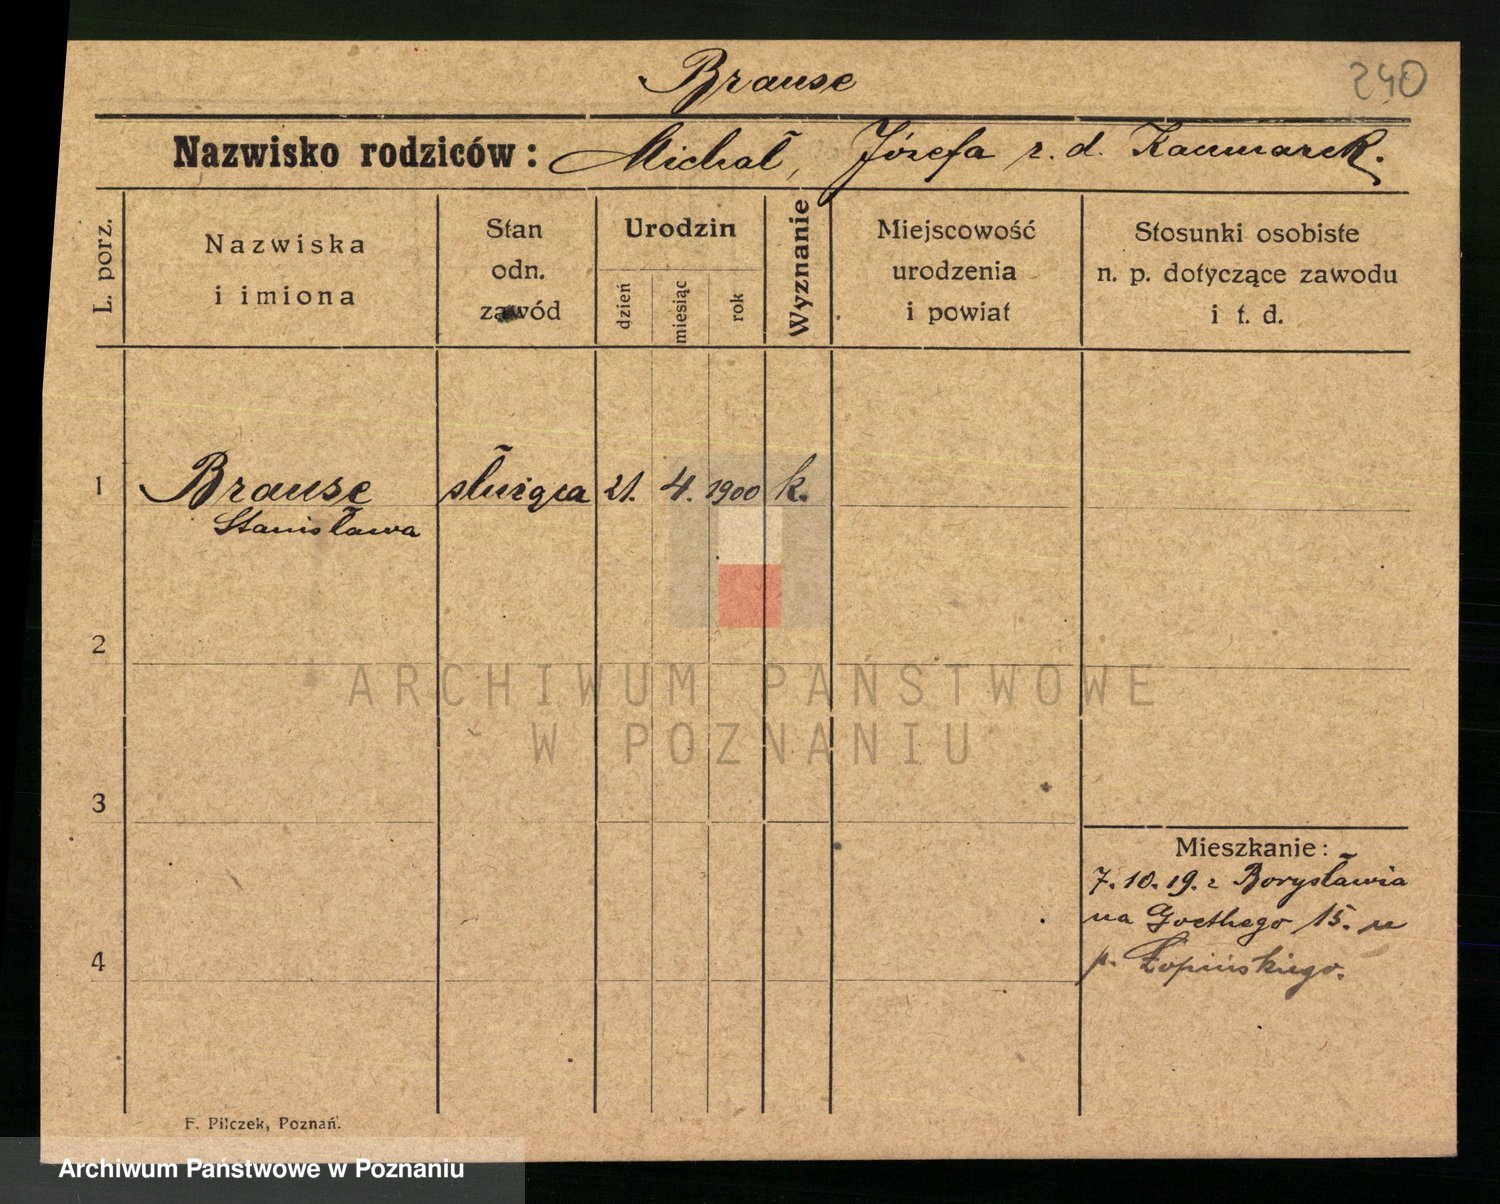 Brause
240
Nazwisko rodziców: Michał, Józefa z. d. Kaczmarek.
L. porz.
Nazwiska
i imiona
Stan
odn.
zawód
Urodzin
dzień
miesiąc
rok
Wyznanie
Miejscowość
urodzenia
i powiat
Stosunki osobiste
n. p. dotyczące zawodu
i t. d.
1
Brause służąca 21. 4. 1900 k.
Stanisława
2
ARCHIWUM PAŃSTWOWE
W POZNANIU
3
Mieszkanie:
7.10.19. z Borysławia
na Goethego 15. u
4
p. Łopińskiego.
F. Pilczek, Poznań.
Archiwum Państwowe w Poznaniu